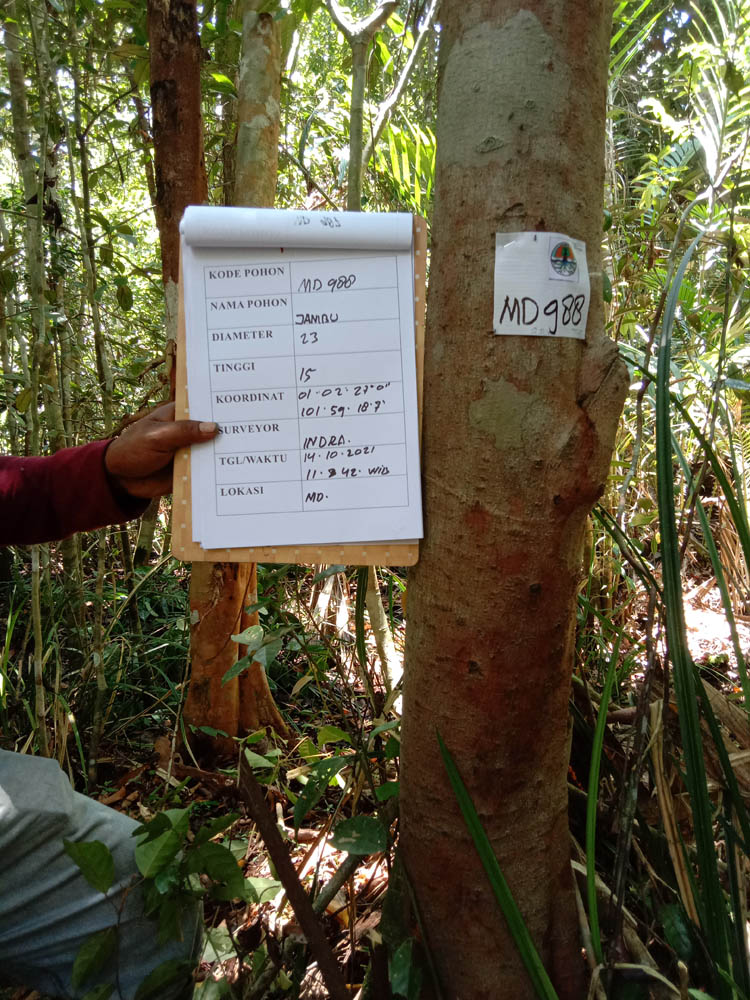 KODE POHON MD 988
NAMA POHON JAMBU
DIAMETER 23
TINGGI 15
KOORDINAT 01·02·27'0"
101·59·18·7'
SURVEYOR INDRA.
TGL/WAKTU 14.10.2021
11·842·WIB
LOKASI MD.
MD 988